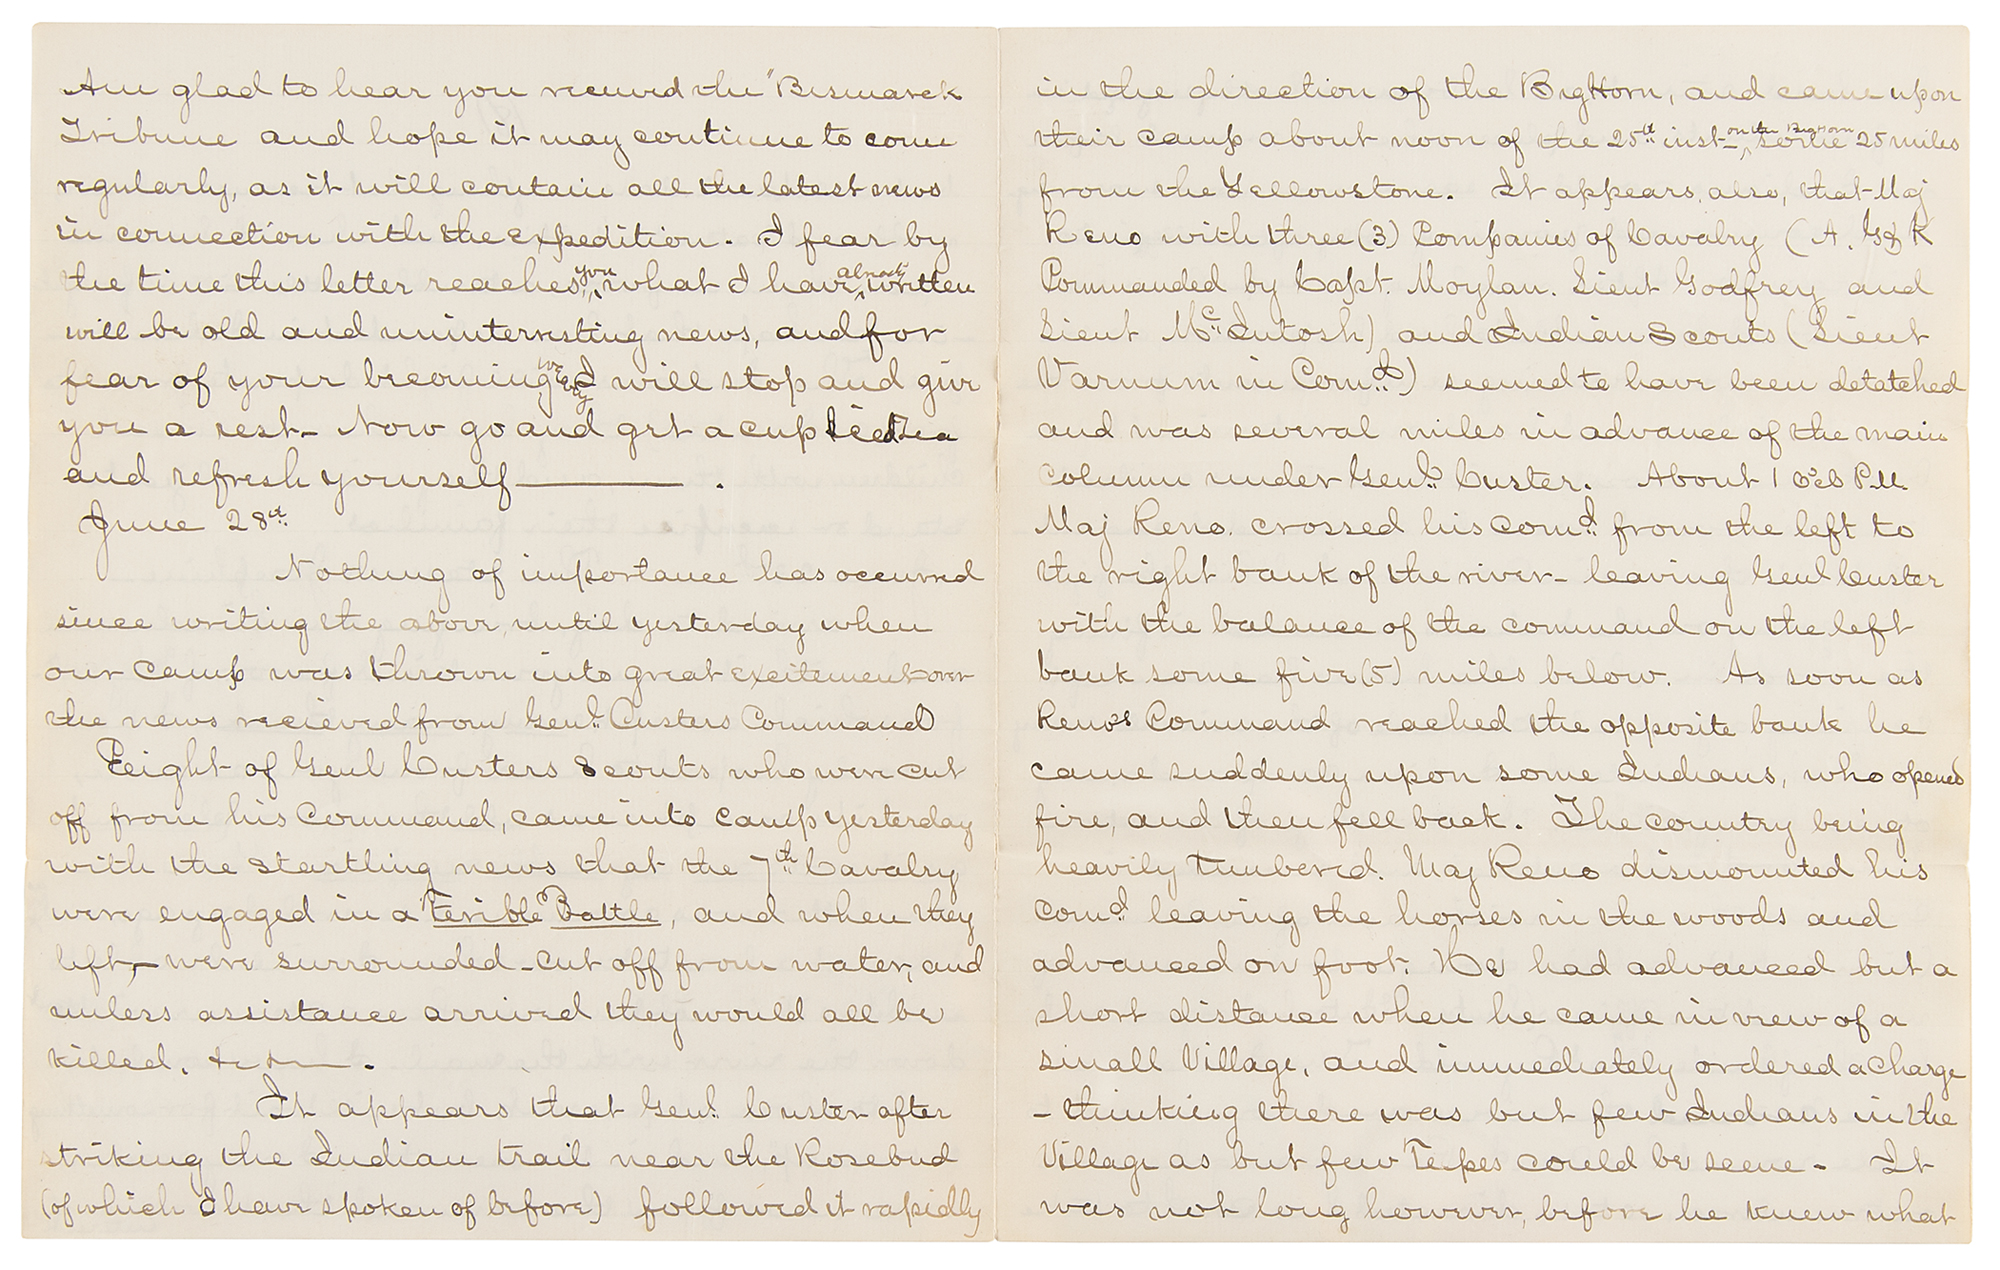 Am glad to hear you received the "Bismarck
Tribune and hope it may continue to come
regularly, as it will contain all the latest news
in connection with the expedition. I fear by
the time this letter reaches you, what I have already written
will be old and uninteresting news, and for
fear of your becoming weary I will stop and give
you a rest - Now go and get a cup Tea
and refresh yourself ———.
June 28th
Nothing of importance has occurred
since writing the above, until yesterday when
our camp was thrown into great excitement over
the news recieved from Genl. Custers Command
Eight of Genl Custers Scouts who were cut
off from his Command, came into camp yesterday
with the startling news that the 7th Cavalry
were engaged in a "Terible Battle", and when they
left, - were surrounded - cut off from water, and
unless assistance arrived they would all be
killed. &c &c ——.
It appears that Genl. Custer after
striking the Indian trail near the Rosebud
(of which I have spoken of before) followed it rapidly
in the direction of the Big Horn, and came upon
their camp about noon of the 25th inst - on the Big Horn some 25 miles
from the Yellowstone. It appears, also, that Maj
Reno with three (3) Companies of Cavalry (A. G & K
Commanded by Capt. Moylan. Lieut Godfrey and
Lieut McIntosh) and Indian Scouts (Lieut
Varnum in Comd) seemed to have been detatched
and was several miles in advance of the main
column under Genl. Custer. About 1 P.M.
Maj Reno. crossed his comd. from the left to
the right bank of the river - leaving Genl Custer
with the balance of the command on the left
bank some five (5) miles below. As soon as
Reno's Command reached the opposite bank he
came suddenly upon some Indians, who opened
fire, and then fell back. The country being
heavily timbered. Maj Reno dismounted his
comd. leaving the horses in the woods and
advanced on foot. He had advanced but a
short distance when he came in view of a
small Village, and immediately ordered a charge
- thinking there was but few Indians in the
Village as but few Tepes could be seene - It
was not long however, before he knew what